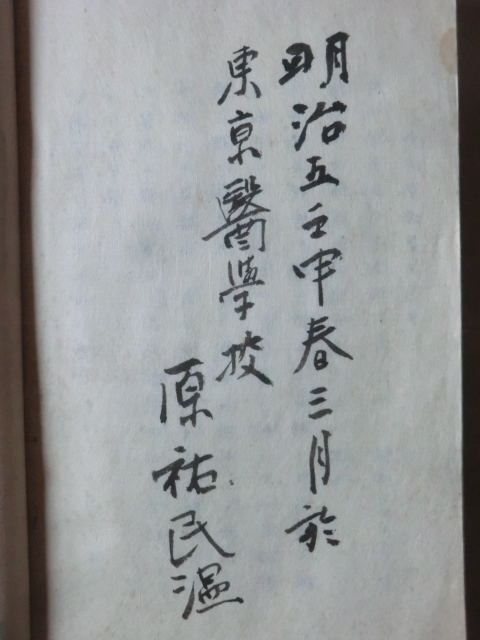 明治五壬申春三月於
東京醫學校
原祐民温